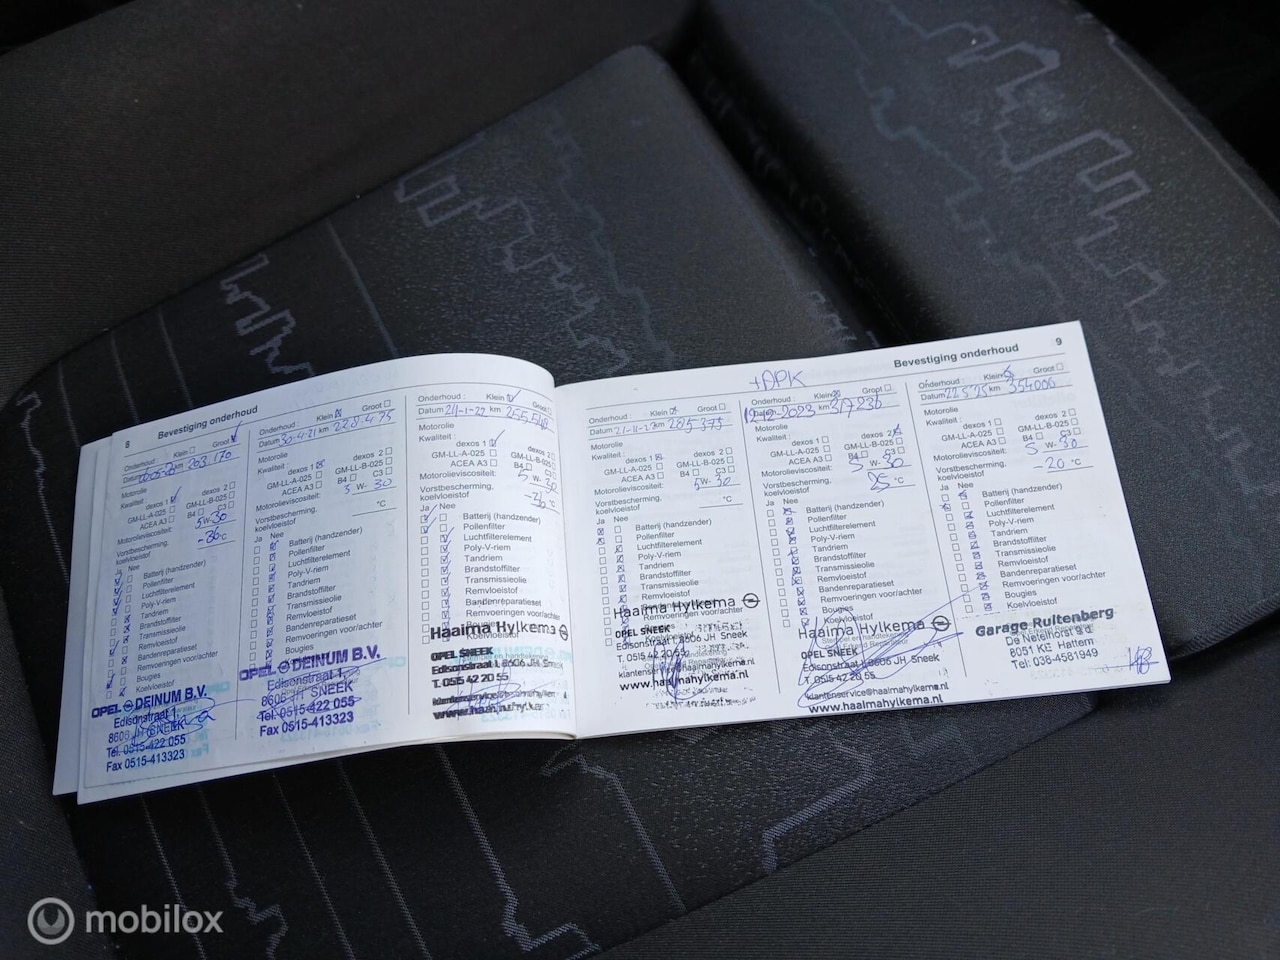 8 Bevestiging onderhoud
Onderhoud : Klein Groot
Datum km 203.170
Motorolie
Kwaliteit : dexos 1 dexos 2
GM-LL-A-025 GM-LL-B-025
ACEA A3 B4 C3
Motorolieviscositeit: 5W-30
Vorstbescherming,
koelvloeistof -36 °C
Ja Nee
Batterij (handzender)
Pollenfilter
Luchtfilterelement
Poly-V-riem
Tandriem
Brandstoffilter
Transmissieolie
Bandenreparatieset
Remvoeringen voor/achter
Remvloeistof
Bougies
Koelvloeistof
OPEL DEINUM B.V.
Edisonstraat 1
8606 JH SNEEK
Tel. 0515-422 055
Fax 0515-413323
Onderhoud : Klein Groot
Datum 30-4-21 km 228.475
Motorolie
Kwaliteit : dexos 1 dexos 2
GM-LL-A-025 GM-LL-B-025
ACEA A3 B4 C3
Motorolieviscositeit: 5 W- 30
Vorstbescherming,
koelvloeistof °C
Ja Nee
Batterij (handzender)
Pollenfilter
Luchtfilterelement
Poly-V-riem
Tandriem
Brandstoffilter
Transmissieolie
Bandenreparatieset
Remvoeringen voor/achter
OPEL DEINUM B.V.
Edisonstraat 1,
8606 JH SNEEK
Tel. 0515-422 055
Fax 0515-413323
Onderhoud : Klein Groot
Datum km 255.548
Motorolie
Kwaliteit : dexos 1 dexos 2
GM-LL-A-025 GM-LL-B-025
ACEA A3 B4 C3
Motorolieviscositeit: 5 W- 30
Vorstbescherming,
koelvloeistof °C
Ja Nee
Batterij (handzender)
Pollenfilter
Luchtfilterelement
Poly-V-riem
Tandriem
Brandstoffilter
Transmissieolie
Bandenreparatieset
Remvoeringen voor/achter
Haaima Hylkema
OPEL SNEEK
Edisonstraat 1, 8606 JH Sneek
T. 0515 42 20 55
klantenservice@haaimahylkema
www.haaimahylkem
Bevestiging onderhoud 9
Onderhoud : Klein Groot
Datum km 285.375
Motorolie
Kwaliteit : dexos 1 dexos 2
GM-LL-A-025 GM-LL-B-025
ACEA A3 B4 C3
Motorolieviscositeit: 5W- 30
Vorstbescherming,
koelvloeistof °C
Ja Nee
Batterij (handzender)
Pollenfilter
Luchtfilterelement
Poly-V-riem
Tandriem
Brandstoffilter
Transmissieolie
Bandenreparatieset
Remvoeringen voor/achter
Haaima Hylkema
OPEL SNEEK
Edisonstraat 1, 8606 JH Sneek
T. 0515 42 20 55
www.haaimahylkema.nl
+APK
Onderhoud : Klein Groot
Datum 12-12-2023 km 317236
Motorolie
Kwaliteit : dexos 1 dexos 2
GM-LL-A-025 GM-LL-B-025
ACEA A3 B4 C3
Motorolieviscositeit: 5 W- 30
Vorstbescherming,
koelvloeistof °C
Ja Nee
Batterij (handzender)
Pollenfilter
Luchtfilterelement
Poly-V-riem
Tandriem
Brandstoffilter
Transmissieolie
Remvloeistof
Bandenreparatieset
Remvoeringen voor/achter
Bougies
Koelvloeistof
Haaima Hylkema
OPEL SNEEK
Edisonstraat 1, 8606 JH Sneek
T. 0515 42 20 55
klantenservice@haaimahylkema.nl
www.haaimahylkema.nl
Onderhoud : Klein Groot
Datum 22-5-25 km 354006
Motorolie
Kwaliteit : dexos 1 dexos 2
GM-LL-A-025 GM-LL-B-025
ACEA A3 B4 C3
Motorolieviscositeit: 5 W- 30
Vorstbescherming,
koelvloeistof -20 °C
Ja Nee
Batterij (handzender)
Pollenfilter
Luchtfilterelement
Poly-V-riem
Tandriem
Brandstoffilter
Transmissieolie
Remvloeistof
Bandenreparatieset
Remvoeringen voor/achter
Bougies
Koelvloeistof
Garage Ruitenberg
De Netelhorst 9 d
8051 KE Hattem
Tel: 036-4581949
mobilox